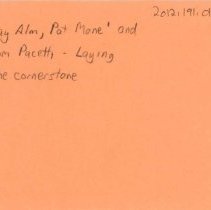 2012.191.0
ay Alm, Pat Mone' and
om Pacetti - Laying
he cornerstone